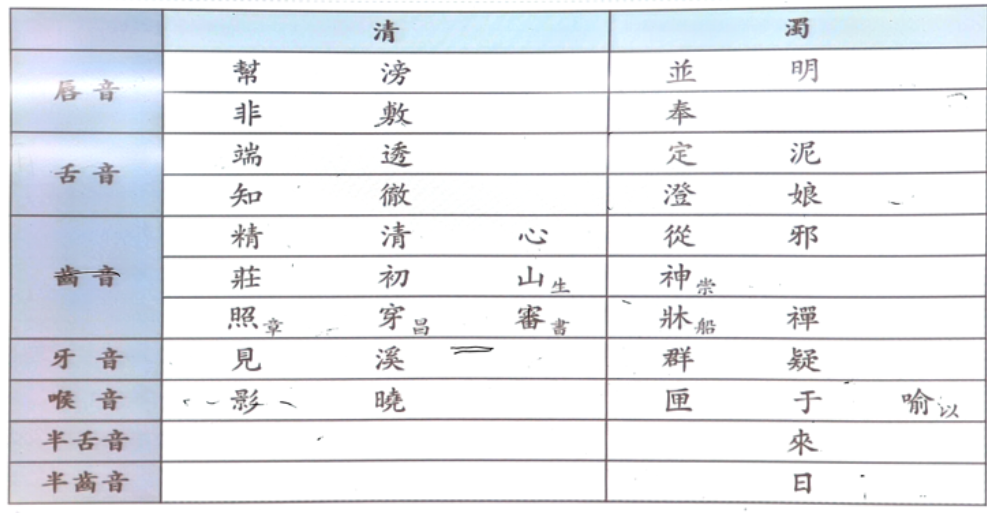 清 濁
唇音 幫 滂 並 明
非 敷 奉
舌音 端 透 定 泥
知 徹 澄 娘
齒音 精 清 心 從 邪
莊 初 山生 神崇
照章 穿昌 審書 牀船 禪
牙音 見 溪 群 疑
喉音 影 曉 匣 于 喻以
半舌音 來
半齒音 日